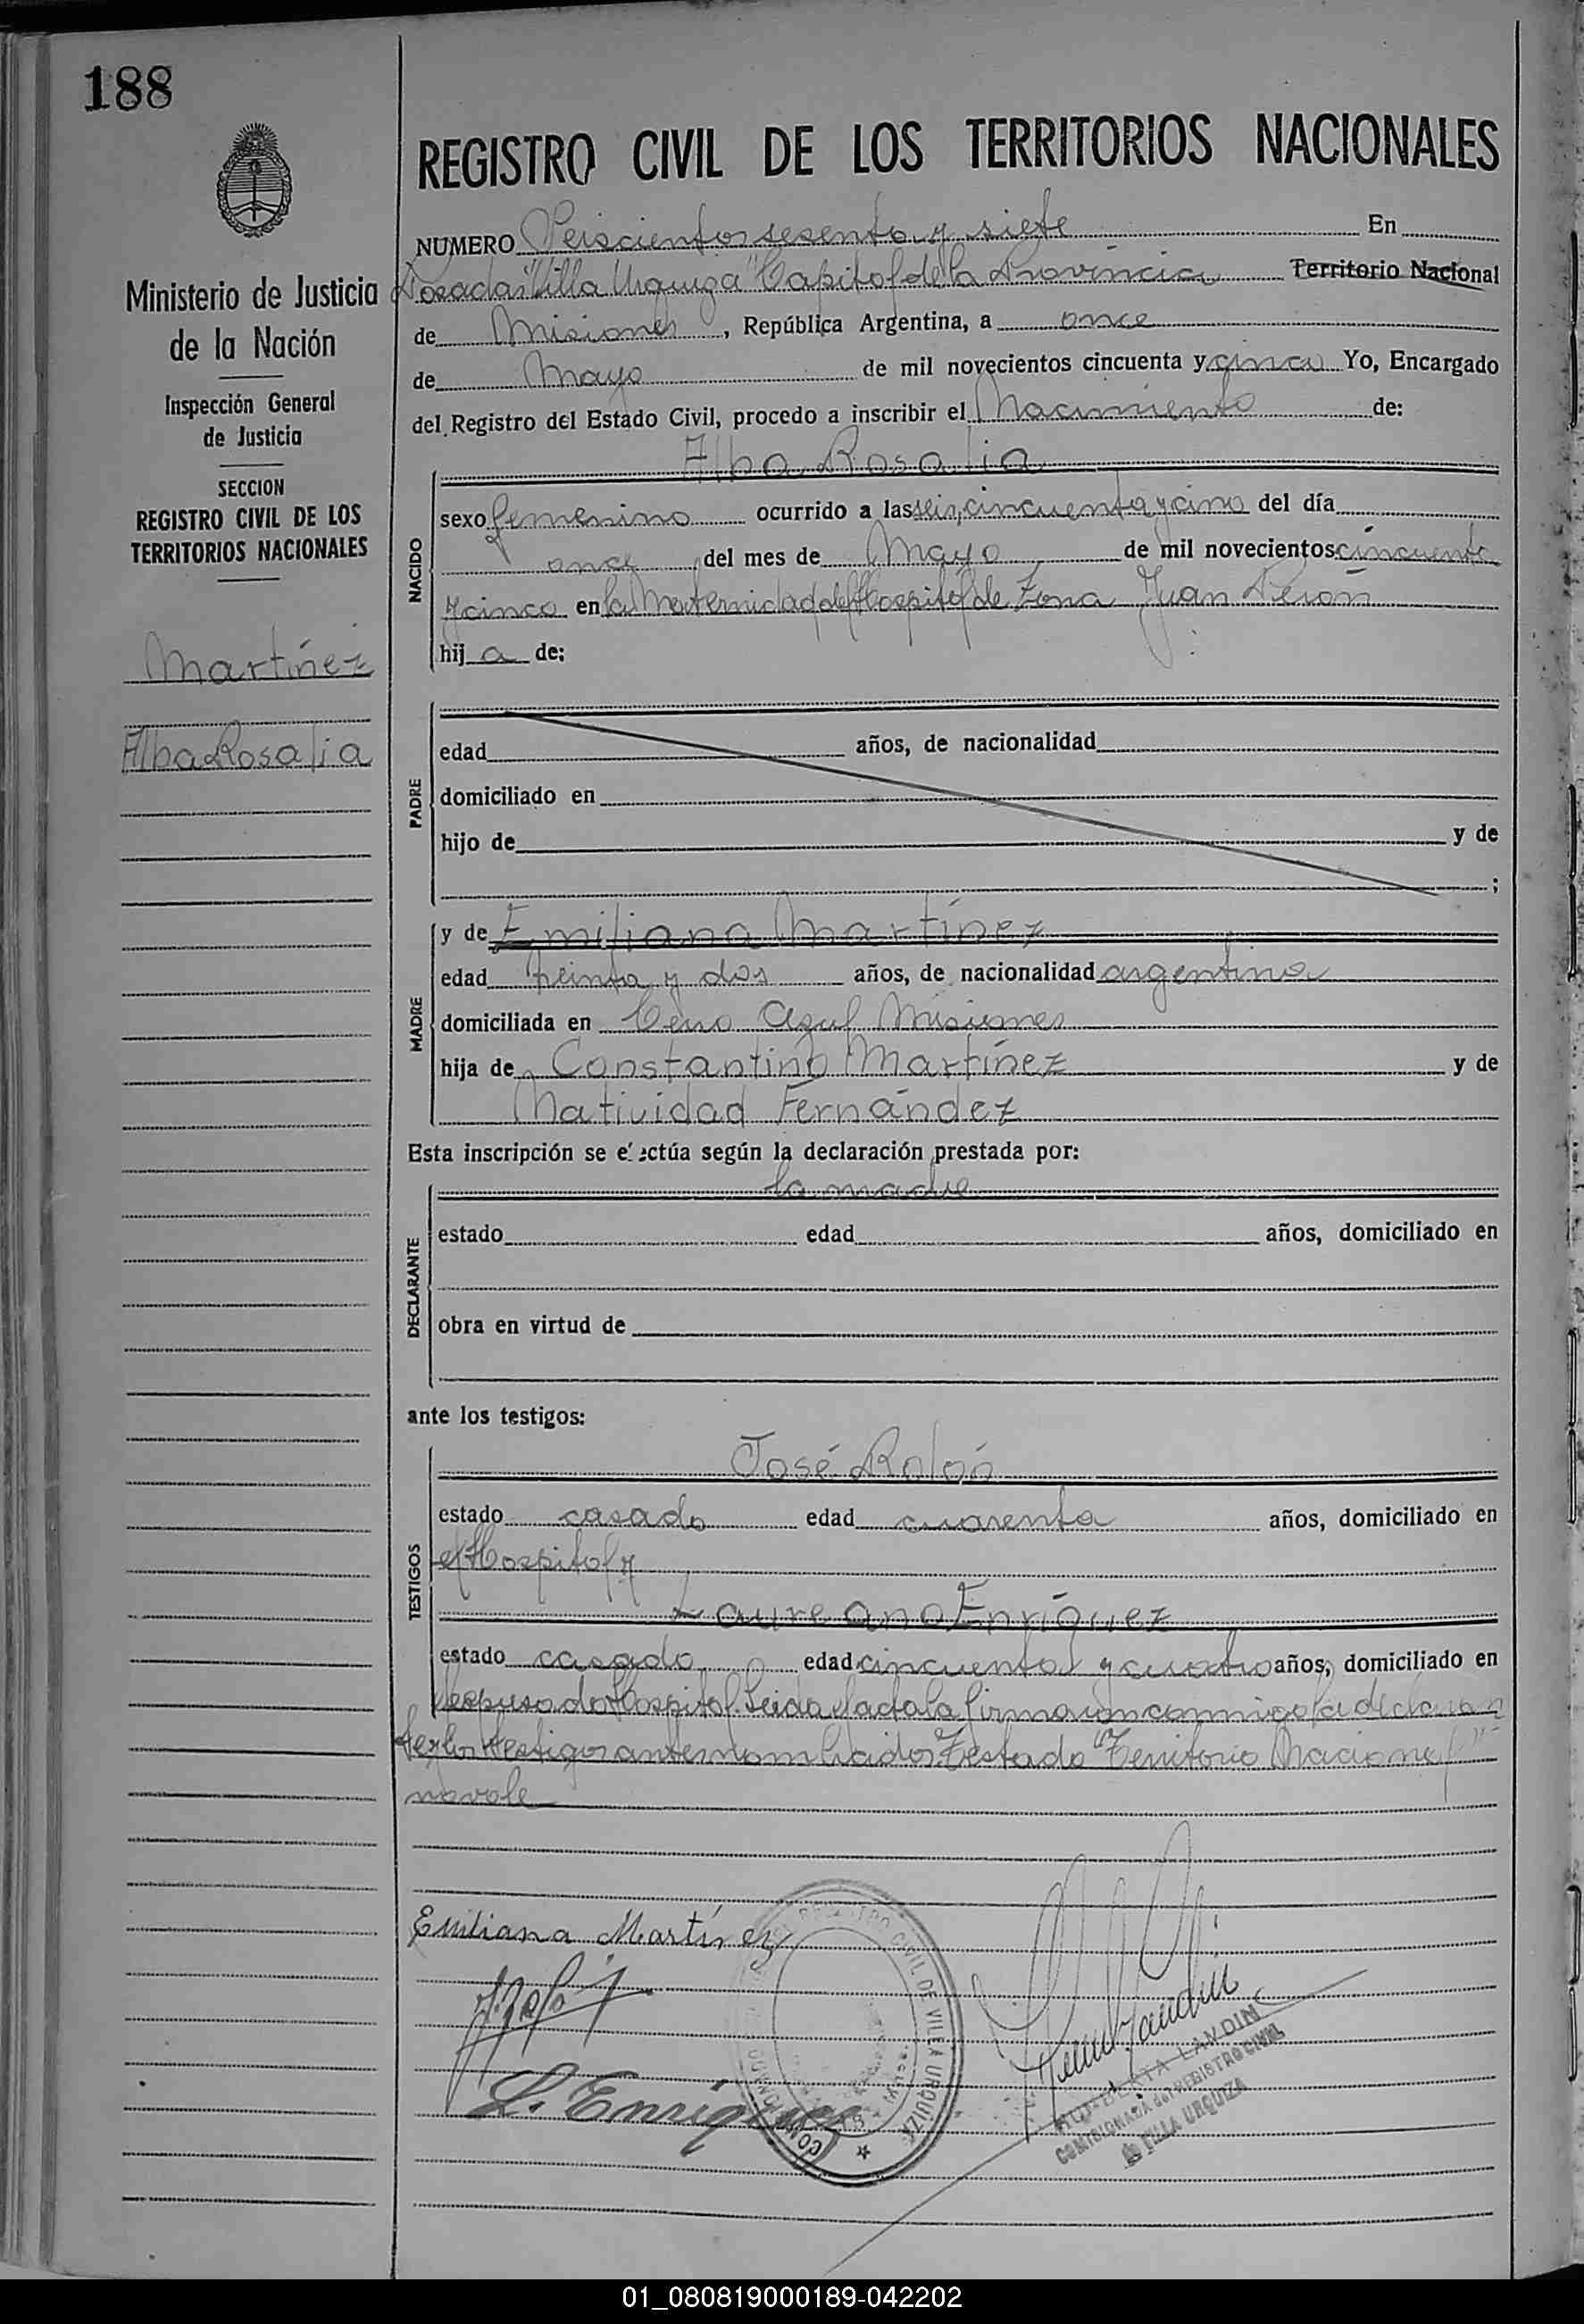 188
REGISTRO CIVIL DE LOS TERRITORIOS NACIONALES
Ministerio de Justicia
de la Nación
Inspección General
de Justicia
SECCION
REGISTRO CIVIL DE LOS
TERRITORIOS NACIONALES
Martínez
Alba Rosalia
NUMERO Seiscientos sesenta y siete En
Posadas "Villa Urquiza" Capital de la Provincia Territorio Nacional
de Misiones, República Argentina, a once
de Mayo de mil novecientos cincuenta y cinco Yo, Encargado
del Registro del Estado Civil, procedo a inscribir el Nacimiento de:
Alba Rosalia
NACIDO
sexo femenino ocurrido a las seis, cincuenta y cinco del día
once del mes de Mayo de mil novecientos cincuenta
y cinco en la Maternidad del Hospital de Zona Juan Perón
hij a de:
PADRE
edad años, de nacionalidad
domiciliado en
hijo de y de
;
MADRE
y de Emiliana Martínez
edad treinta y dos años, de nacionalidad argentina
domiciliada en Cerro Azul Misiones
hija de Constantino Martínez y de
Natividad Fernández
Esta inscripción se efectúa según la declaración prestada por:
la madre
DECLARANTE
estado edad años, domiciliado en
obra en virtud de
ante los testigos:
TESTIGOS
José Rolón
estado casado edad cuarenta años, domiciliado en
el Hospital y
Laureano Enríquez
estado casado edad cincuenta y cuatro años, domiciliado en
el expresado Hospital. Leida el acta la firmaron conmigo la declaran
te y los testigos antes nombrados Testado "Territorio Nacional"
no vale
Emiliana Martínez
J. Roló
L. Enriquez
REGISTRO CIVIL DE VILLA URQUIZA
LANDIN
COMISIONADA del REGISTRO CIVIL
de VILLA URQUIZA
01_080819000189-042202